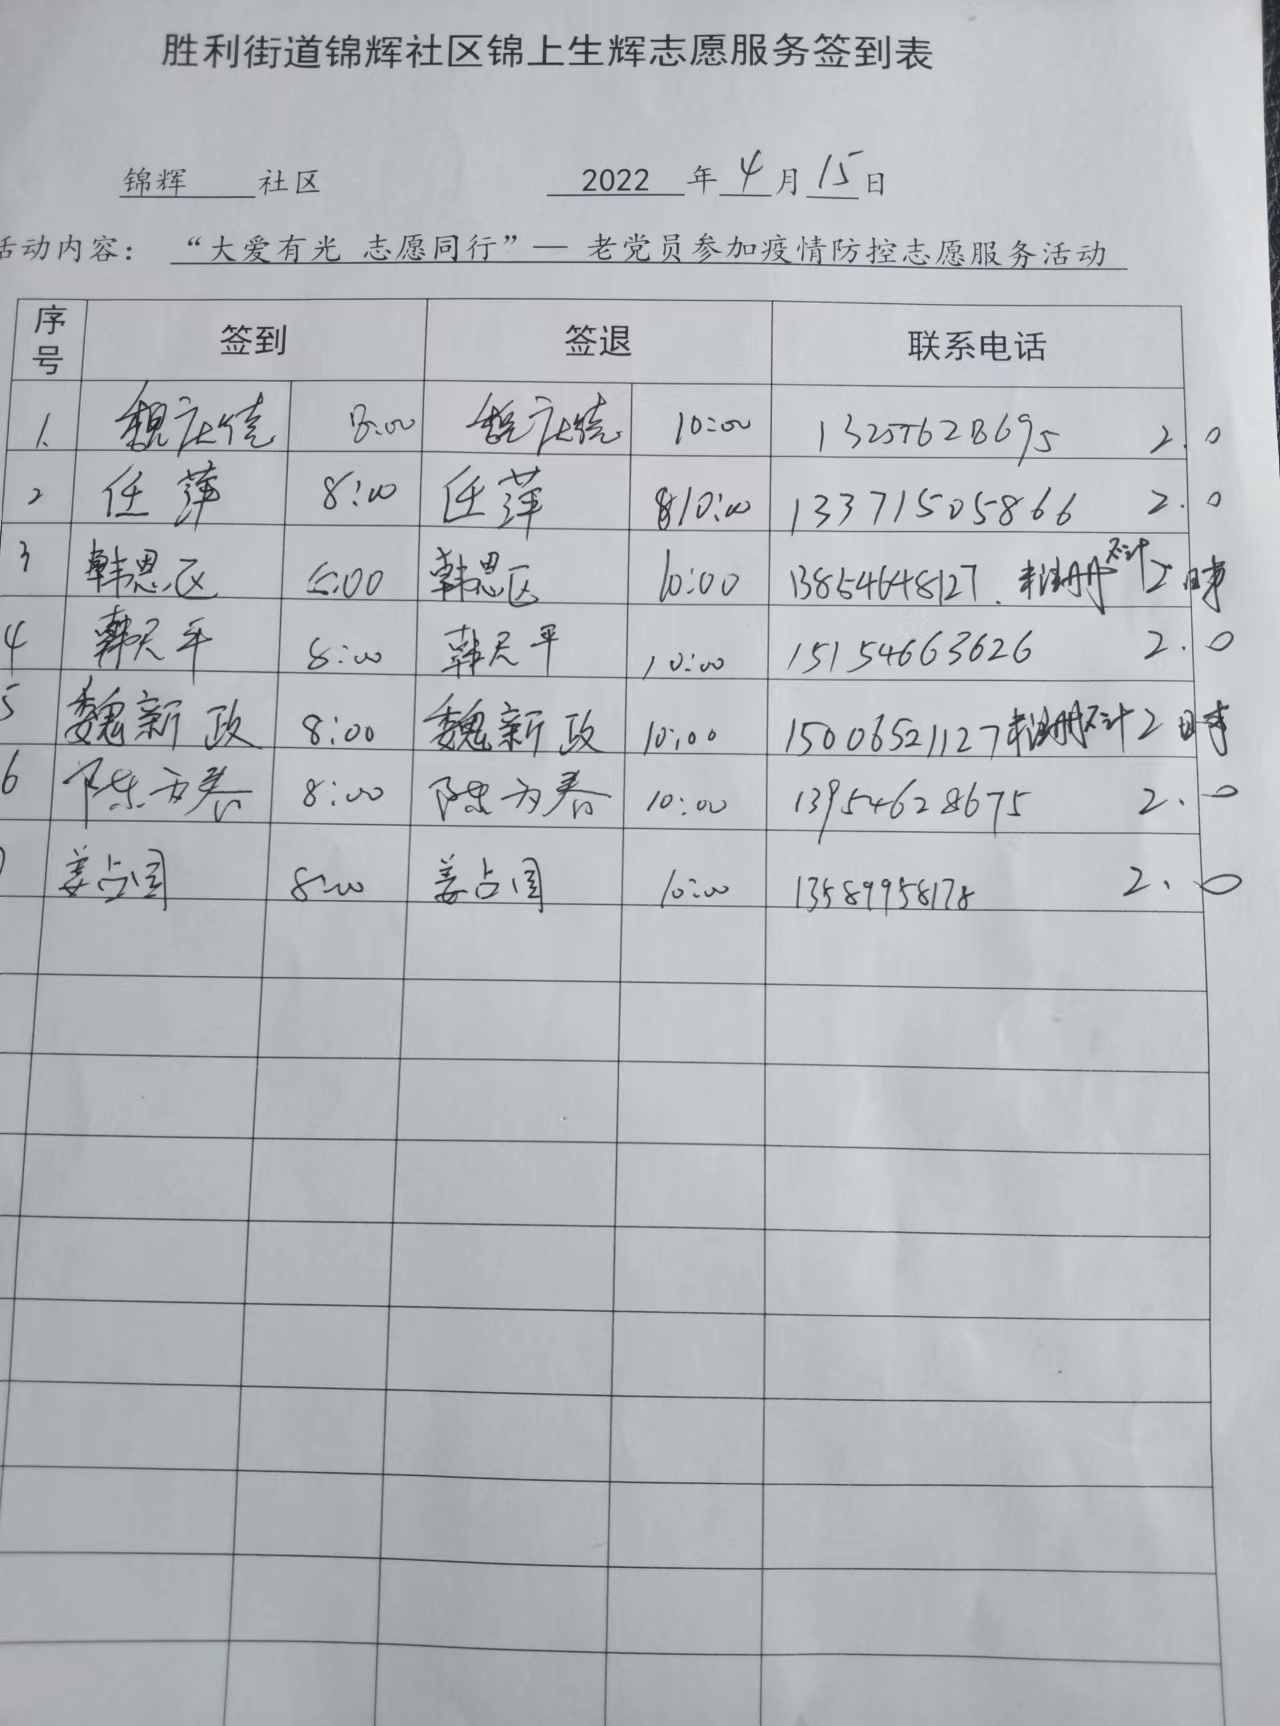 胜利街道锦辉社区锦上生辉志愿服务签到表
锦辉 社区 2022 年 4 月 15 日
活动内容： “大爱有光 志愿同行”— 老党员参加疫情防控志愿服务活动
序号 签到 签退 联系电话
1. 8:00 10:00 2.0
2 任萍 8:00 任萍 10:00 13371505866 2.0
3 韩恩区 8:00 韩恩区 10:00 13854648127. 未注册不计 2
4 韩天平 8:00 韩天平 10:00 15154663626 2.0
5 魏新政 8:00 魏新政 10:00 15006521127 未注册不计 2
6 陈为春 8:00 陈为春 10:00 13954628675 2.0
姜占国 8:00 姜占国 10:00 13589958178 2.0